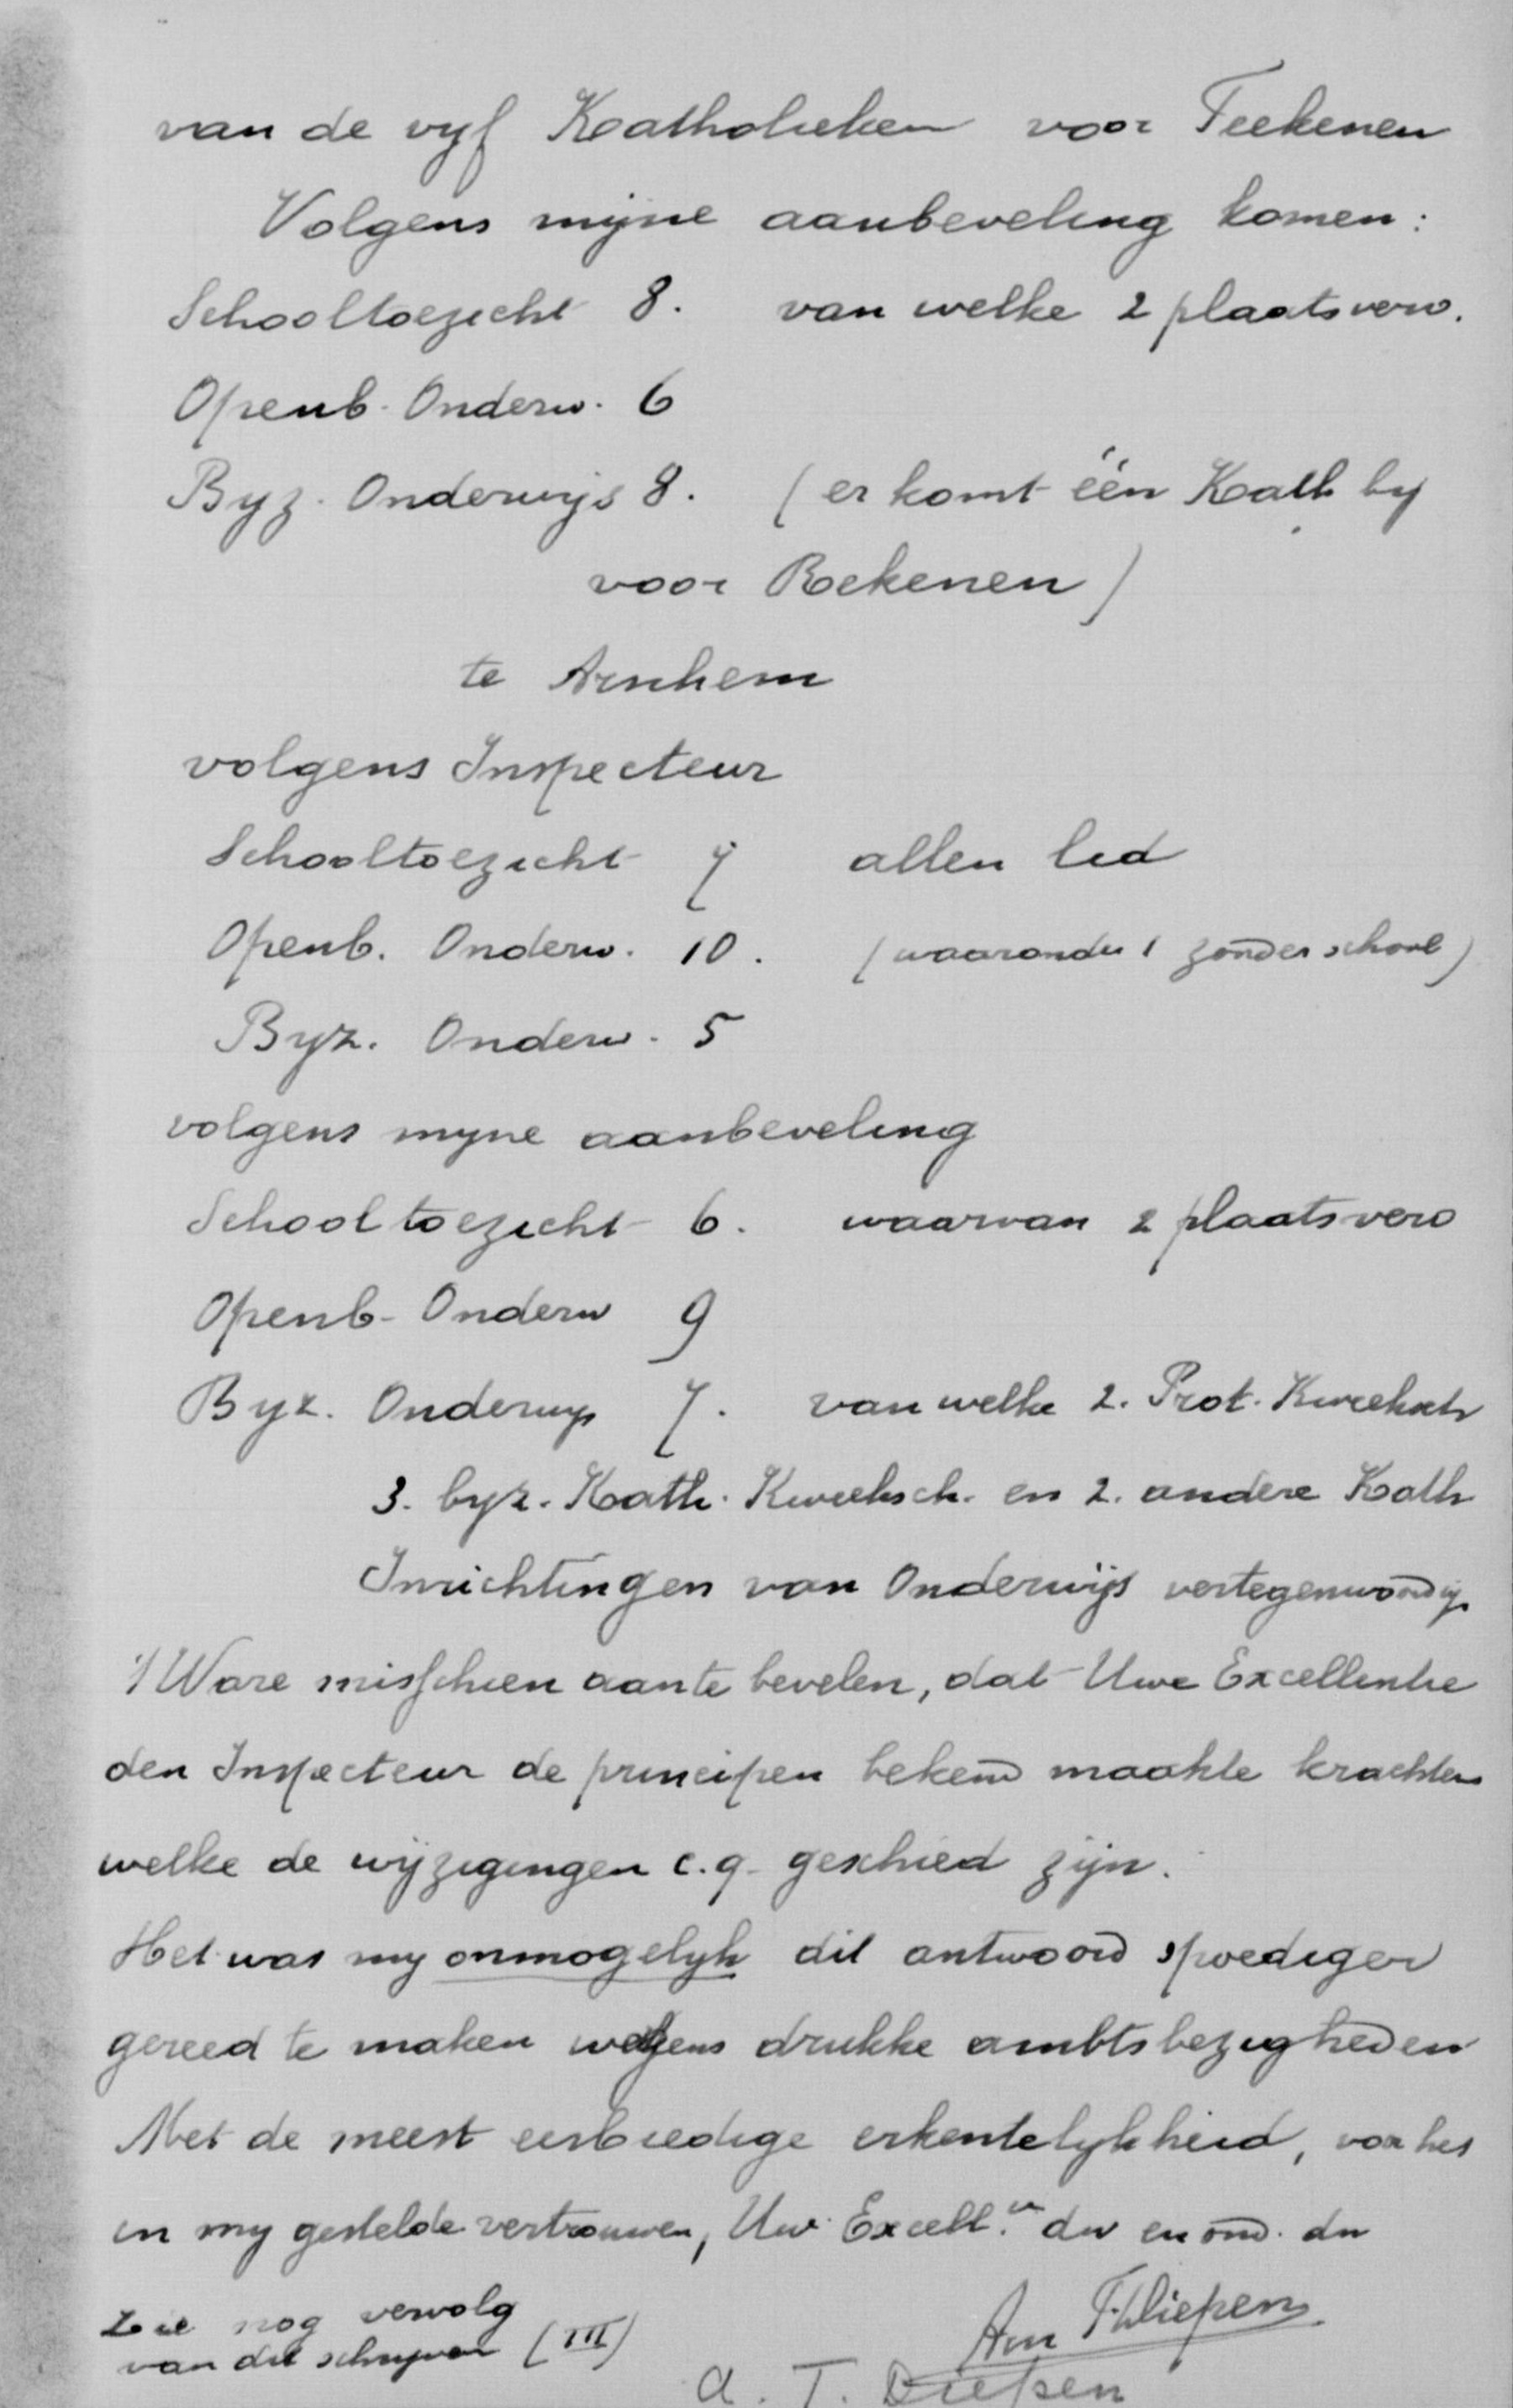 van de vyf Katholieken voor Teekenen
Volgens mijne aanbeveling komen:
Schooltoezicht 8. van welke 2 plaatsverv.
Openb. Onderw. 6
Byz. Onderwijs 8. (er komt één Kath by
voor Rekenen)
te Arnhem
volgens Inspecteur
Schooltoezicht 7 allen lid
Openb. Onderw. 10. (waaronder 1 zonder school)
Byz. Onderw. 5
volgens myne aanbeveling
Schooltoezicht 6. waarvan 2 plaatsverv
Openb. Onderw 9
Byz. Onderwys 7. van welke 2. Prot. Kweeksch
3. byz. Kath. Kweeksch. en 2. andere Kath
Inrichtingen van Onderwijs vertegenwoordig.
't Ware misschien aan te bevelen, dat Uwe Excellentie
den Inspecteur de principen bekend maakte krachtens
welke de wijzigingen c.q. geschied zijn.
Het was my onmogelyk dit antwoord spoediger
gereed te maken wegens drukke ambtsbezigheden
Met de meest eerbiedige erkentelykheid, voor het
in my gestelde vertrouwen, Uw Excell.ie dw en ond. dn
Zie nog vervolg
van dit schrijven (III)
Diepen
A. F. Diepen